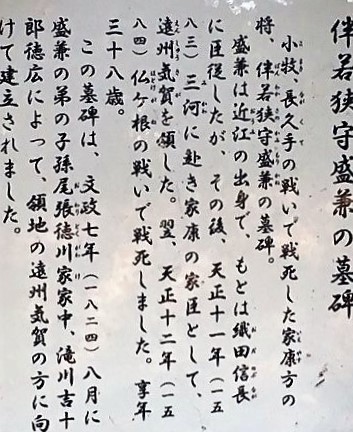 伴若狭守盛兼の墓碑
小牧、長久手の戦いで戦死した家康方の
将、伴若狭守盛兼の墓碑。
盛兼は近江の出身で、もとは織田信長
に臣従したが、その後、天正十一年(一五
八三)三河に赴き家康の家臣として、
遠州気賀を領した。翌、天正十二年(一五
八四)仏ヶ根の戦いで戦死しました。享年
三十八歳。
この墓碑は、文政七年(一八二四)八月に
盛兼の弟の子孫尾張徳川家家中、滝川吉十
郎徳広によって、領地の遠州気賀の方に向
けて建立されました。